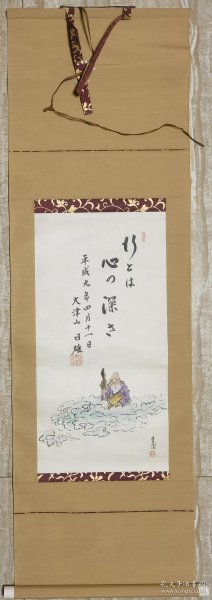 行とは
心の深さ
平成九年四月十一日
大津山 日雄